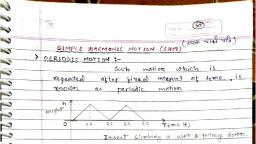 SIMPLE HARMONIC MOTION (SHM)
> PERIODIC MOTION :-
Such motion which is
repeated after fixed interval of time, is
known as periodic motion
height
Time (t)
Insect climbing a wall & falling down